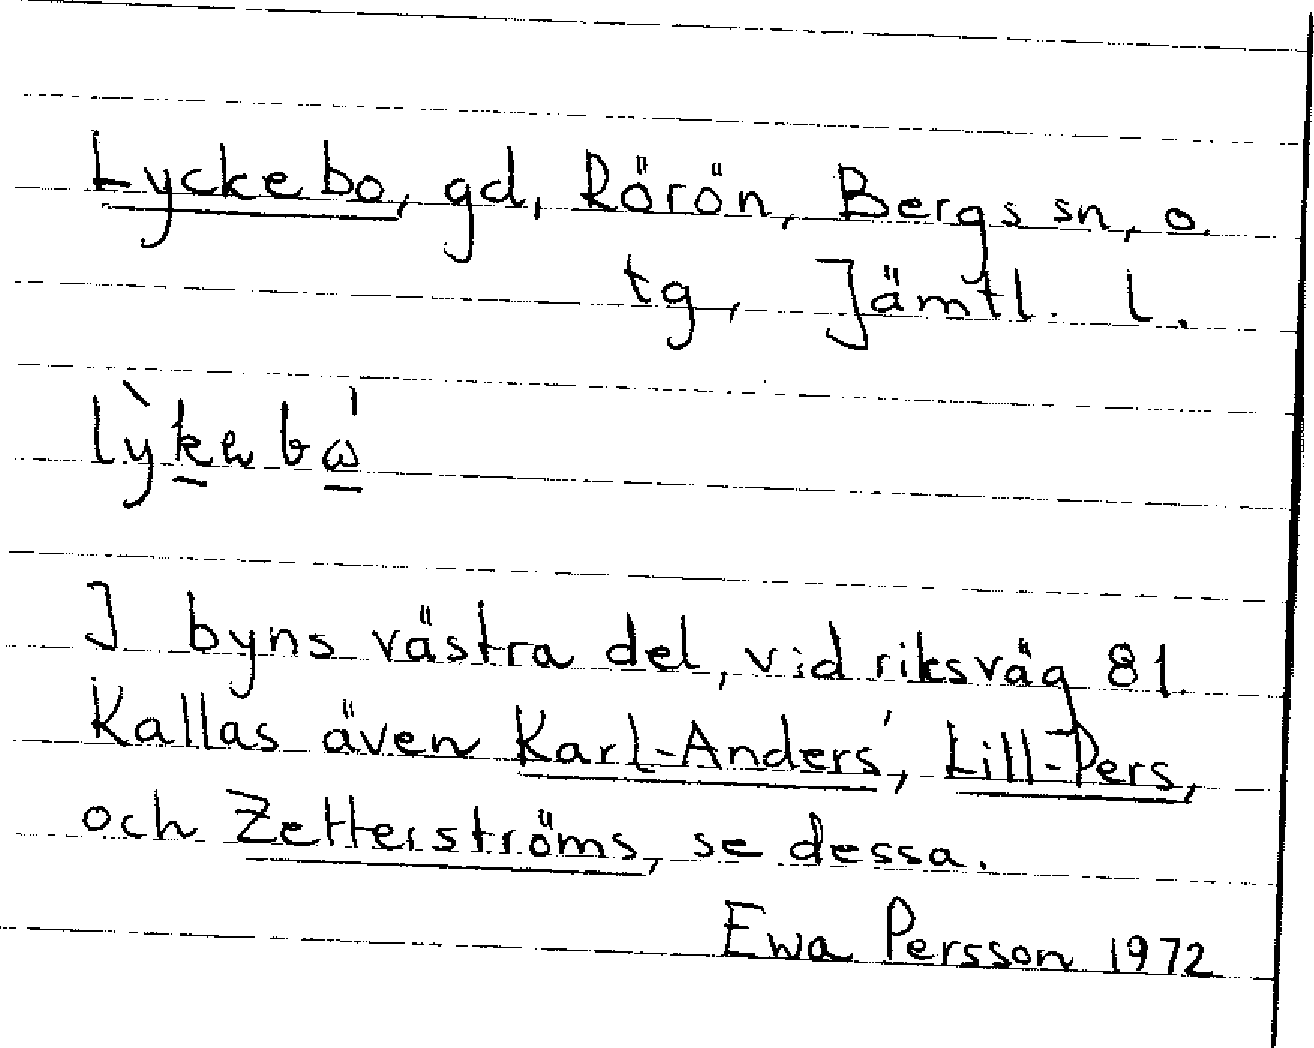 Lyckebo, gd, Rörön, Bergs sn, o.
tg, Jämtl. l.
I byns västra del, vid riksväg 81.
Kallas även Karl-Anders', Lill-Pers,
och Zetterströms, se dessa.
Ewa Persson 1972